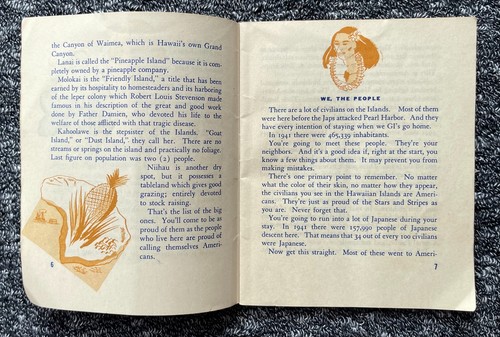 the Canyon of Waimea, which is Hawaii's own Grand
Canyon.
Lanai is called the "Pineapple Island" because it is com-
pletely owned by a pineapple company.
Molokai is the "Friendly Island," a title that has been
earned by its hospitality to homesteaders and its harboring
of the leper colony which Robert Louis Stevenson made
famous in his description of the great and good work
done by Father Damien, who devoted his life to the
welfare of those afflicted with that tragic disease.
Kahoolawe is the stepsister of the Islands. "Goat
Island," or "Dust Island," they call her. There are no
streams or springs on the island and practically no foliage.
Last figure on population was two (2) people.
Niihau is another dry
spot, but it possesses a
tableland which gives good
grazing; entirely devoted
to stock raising.
That's the list of the big
ones. You'll come to be as
proud of them as the people
who live here are proud of
calling themselves Ameri-
cans.
6
WE, THE PEOPLE
There are a lot of civilians on the Islands. Most of them
were here before the Japs attacked Pearl Harbor. And they
have every intention of staying when we GI's go home.
In 1941 there were 465,339 inhabitants.
You're going to meet these people. They're your
neighbors. And it's a good idea if, right at the start, you
know a few things about them. It may prevent you from
making mistakes.
There's one primary point to remember. No matter
what the color of their skin, no matter how they appear,
the civilians you see in the Hawaiian Islands are Ameri-
cans. They're just as proud of the Stars and Stripes as
you are. Never forget that.
You're going to run into a lot of Japanese during your
stay. In 1941 there were 157,990 people of Japanese
descent here. That means that 34 out of every 100 civilians
were Japanese.
Now get this straight. Most of these went to Ameri-
7